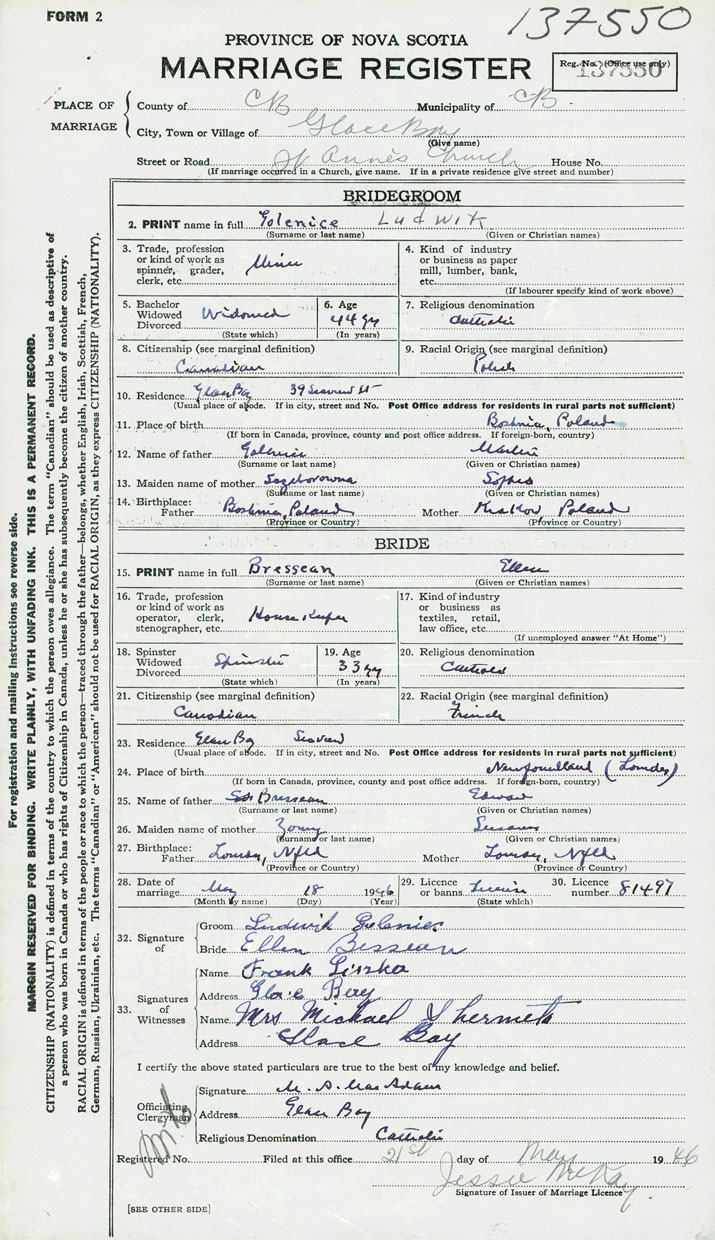 FORM 2
137550
PROVINCE OF NOVA SCOTIA
MARRIAGE REGISTER
Reg. No. (Office use only)
137550
PLACE OF MARRIAGE
County of CB Municipality of CB
City, Town or Village of Glace Bay
(Give name)
Street or Road St Anne's Church House No.
(If marriage occurred in a Church, give name. If in a private residence give street and number)
BRIDEGROOM
2. PRINT name in full Golenice Ludwik
(Surname or last name) (Given or Christian names)
3. Trade, profession or kind of work as spinner, grader, clerk, etc. Miner
4. Kind of industry or business as paper mill, lumber, bank, etc.
(If labourer specify kind of work above)
5. Bachelor Widowed Divorced Widowed
(State which)
6. Age 44 yy
(In years)
7. Religious denomination Catholic
8. Citizenship (see marginal definition) Canadian
9. Racial Origin (see marginal definition) Polish
10. Residence Glace Bay 39 Seaview St
(Usual place of abode. If in city, street and No. Post Office address for residents in rural parts not sufficient)
11. Place of birth Boshnia, Poland
(If born in Canada, province, county and post office address. If foreign-born, country)
12. Name of father Martin
(Surname or last name) (Given or Christian names)
13. Maiden name of mother Sophie
(Surname or last name) (Given or Christian names)
14. Birthplace: Father Boshnia, Poland Mother Krakow, Poland
(Province or Country) (Province or Country)
BRIDE
15. PRINT name in full Bressean Ellen
(Surname or last name) (Given or Christian names)
16. Trade, profession or kind of work as operator, clerk, stenographer, etc. House Keeper
17. Kind of industry or business as textiles, retail, law office, etc.
(If unemployed answer "At Home")
18. Spinster Widowed Divorced Spinster
(State which)
19. Age 33 yy
(In years)
20. Religious denomination Catholic
21. Citizenship (see marginal definition) Canadian
22. Racial Origin (see marginal definition) French
23. Residence Glace Bay Seaview
(Usual place of abode. If in city, street and No. Post Office address for residents in rural parts not sufficient)
24. Place of birth Newfoundland (Lourdes)
(If born in Canada, province, county and post office address. If foreign-born, country)
25. Name of father Bressean Edward
(Surname or last name) (Given or Christian names)
26. Maiden name of mother
(Surname or last name) (Given or Christian names)
27. Birthplace: Father Nfld Mother Nfld
(Province or Country) (Province or Country)
28. Date of marriage May 18 1946
(Month by name) (Day) (Year)
29. Licence or banns License
(State which)
30. Licence number 81497
32. Signature of
Groom Ludwik
Bride Ellen Bessean
33. Signatures of Witnesses
Name Frank Liszka
Address Glace Bay
Name Mrs Michael
Address Glace Bay
I certify the above stated particulars are true to the best of my knowledge and belief.
Officiating Clergyman
Signature M. A. MacAdam
Address Glace Bay
Religious Denomination Catholic
Registered No. Filed at this office 21st day of May 1946
Jessie McKay
Signature of Issuer of Marriage Licence
[SEE OTHER SIDE]
For registration and mailing instructions see reverse side.
MARGIN RESERVED FOR BINDING. WRITE PLAINLY, WITH UNFADING INK. THIS IS A PERMANENT RECORD.
CITIZENSHIP (NATIONALITY) is defined in terms of the country to which the person owes allegiance. The term "Canadian" should be used as descriptive of
a person who was born in Canada or who has rights of Citizenship in Canada, unless he or she has subsequently become the citizen of another country.
RACIAL ORIGIN is defined in terms of the people or race to which the person—traced through the father—belongs, whether English, Irish, Scottish, French,
German, Russian, Ukrainian, etc. The terms "Canadian" or "American" should not be used for RACIAL ORIGIN, as they express CITIZENSHIP (NATIONALITY).